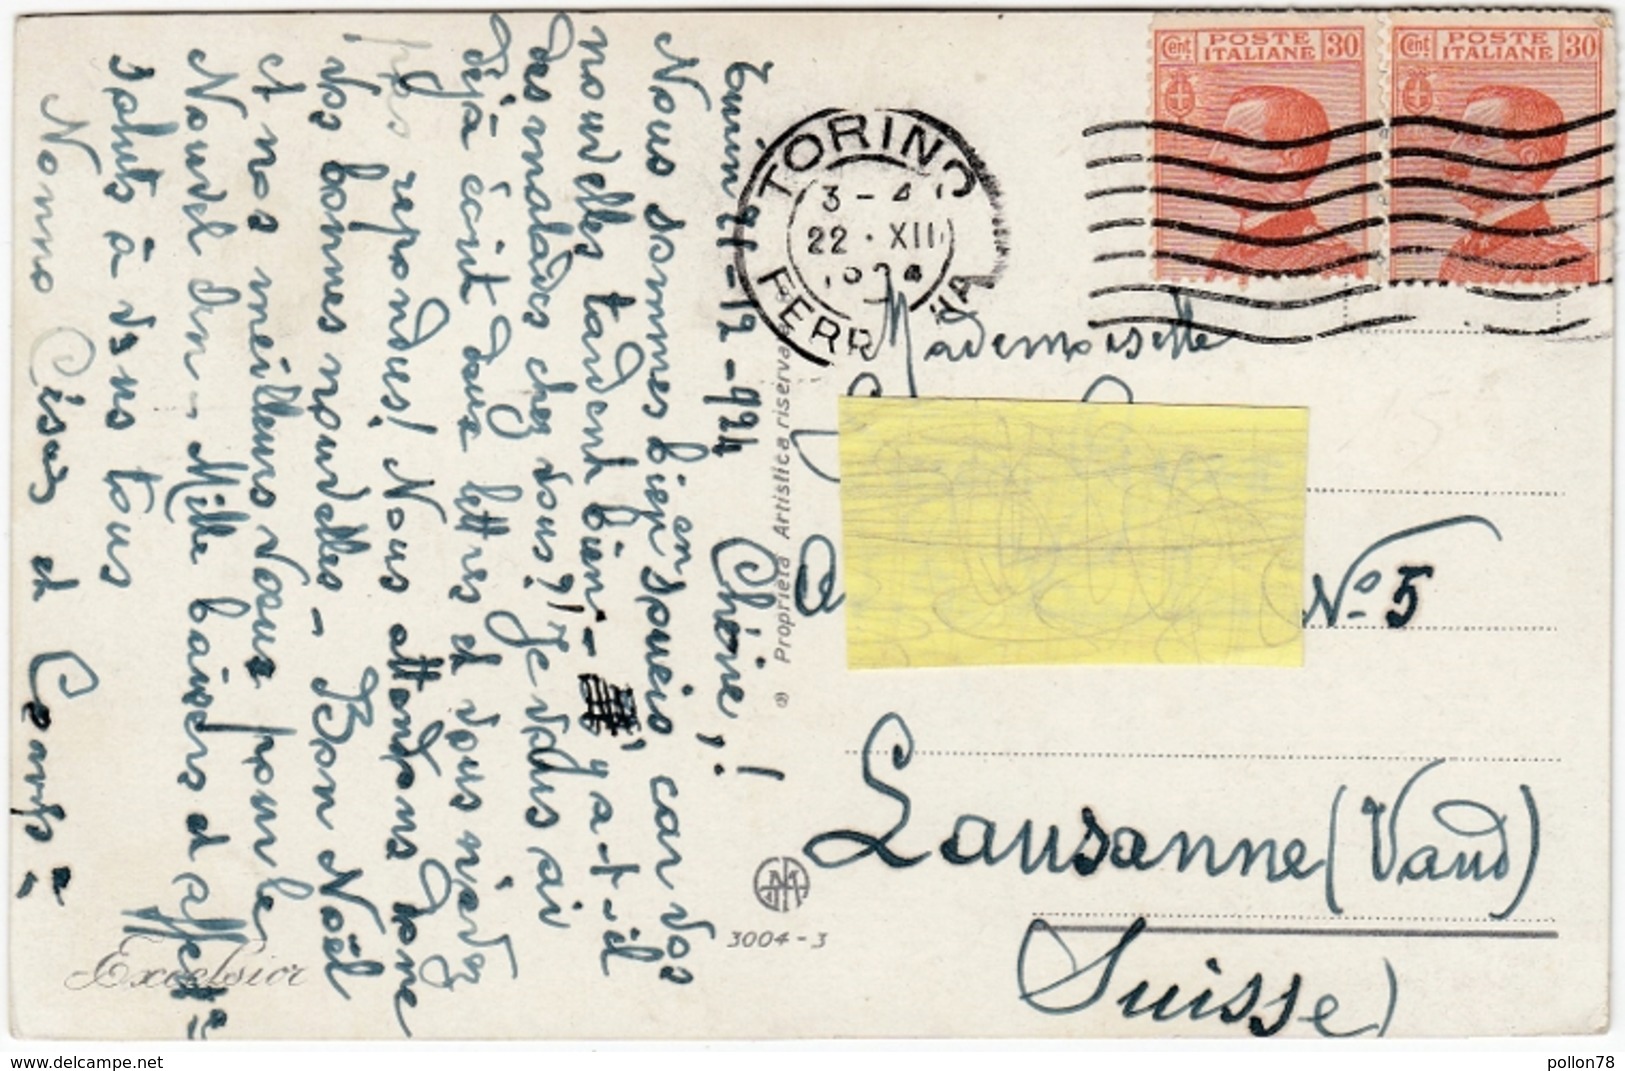 Turin, 21-12-924
Chérie,!
Nous sommes bien en souci, car vos
nouvelles tardent bien! - y a-t-il
des malades chez vous?! Je vous ai
déjà écrit deux lettres et vous n'avez
pas répondues! Nous attendons donc
vos bonnes nouvelles - Bon Noël
et nos meilleurs voeux pour le
Nouvel An - Mille baisers d'affect.
Saluts à vous tous
Nonno César et
Excelsior
® Proprietà Artistica riservata
3004-3
TORINO
3-4
22 · XII
1924
FERROVIA
Cent. POSTE ITALIANE 30
Cent. POSTE ITALIANE 30
Mademoiselle
No. 5
Lausanne (Vaud)
Suisse)
delcampe.net
pollon78